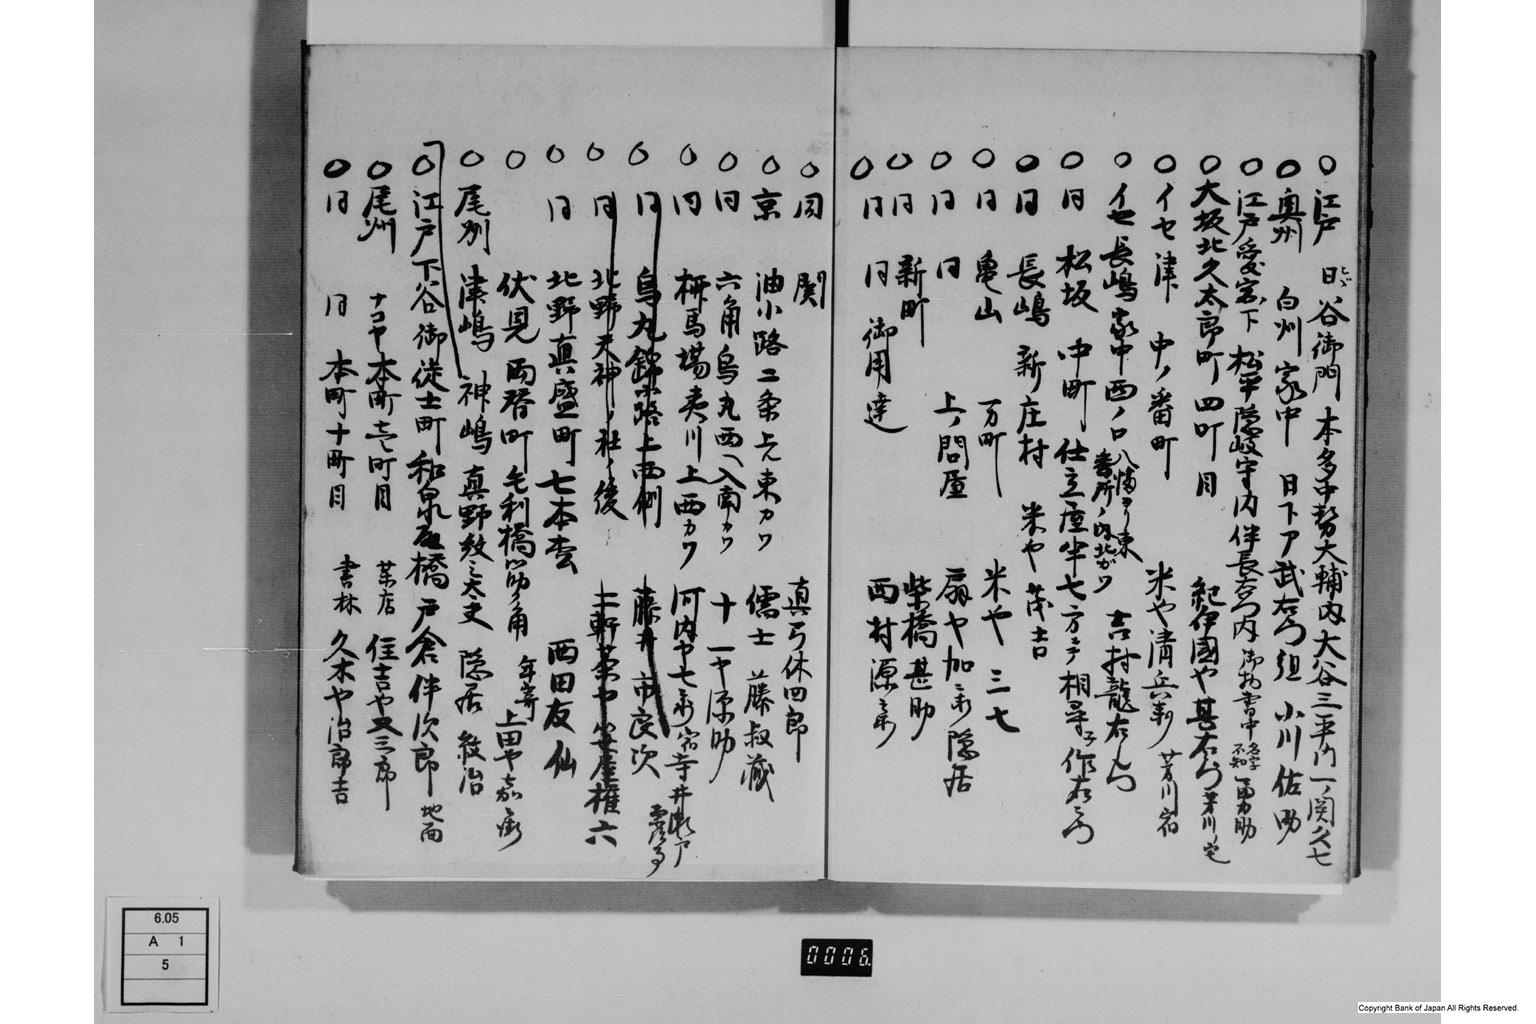 ○江戸 日比谷御門 本多中務大輔内 大谷三平内 一ノ関久七
○奥州 白川家中 日下ア武右衛門組 小川佐助
○江戸愛宕下 松平隠岐守内 伴長右衛門内 御物書中 名字不知 勇助
○大坂北久太郎町四町目 紀伊國や甚右衛門 芳川ノ宅
○イセ津 中ノ番町 米や清兵衛 芳川宿
○イセ長嶋家中西ノ口 八幡ヨリ東 番所ノ内北がワ 吉村龍右衛門
○同 松坂 中町 仕立屋半七方ニテ相尋 作右衛門
○同 長嶋 新庄村 米や 茂吉
○同 亀山 万町 米や 三七
○同 同 上ノ問屋 扇や加兵衛隠居
○同 新町 柴橋甚助
○同 同 御用達 西村源兵衛
○同 関 真弓休四郎
○京 油小路二条上ル東カワ 儒士 藤叔蔵
○同 六角烏丸西へ入南カワ 十一や源助
○同 柳馬場夷川上西カワ 河内や七兵衛 宿寺井瀬戸
○同 烏丸錦小路上西側 藤井市良次
○同 北野天神ノ社ノ後 上軒茶や 権六
○同 北野真盛町 七本松 西田友仙
○伏見 両替町毛利橋筋角 年寄 上田や嘉兵衛
○尾州 津嶋 神嶋 真野紋之太夫 隠居 紋治
○江戸下谷御徒士町和泉殿橋 戸倉伴次郎 地面
○尾州 ナコヤ 本町壱町目 茶店 住吉や又三郎
○同 同 本町十町目 書林 久木や治郎吉
6.05
A 1
5
0006.
Copyright Bank of Japan All Rights Reserved.